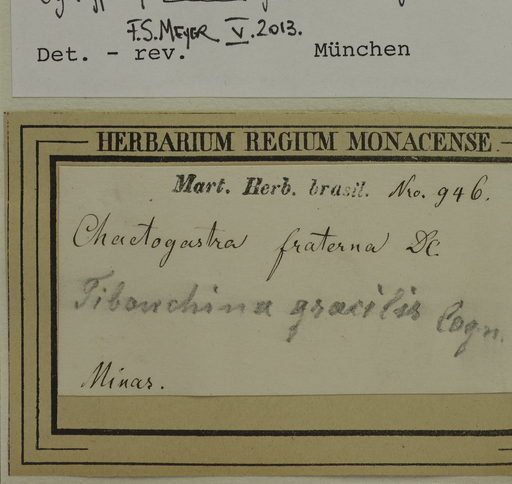 F.S. MEYER V. 2013.
Det. - rev. München
HERBARIUM REGIUM MONACENSE.
Mart. Herb. brasil. Nro. 946.
Chaetogastra fraterna DC.
Tibouchina gracilis Cogn.
Minas.